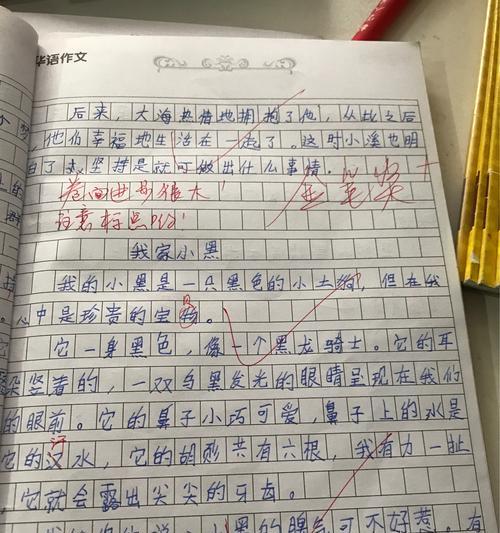 华语作文
后来，大海热情地拥抱了他，从此之后
，他们幸福地生活在一起了。这时小溪也明
白了坚持是就可做出什么事情。
卷面进步很大！
注意标点
金笔尖
我家小黑
我的小黑是一只黑色的小土狗，但在我
心中是珍贵的宝物。
它一身黑色，像一个黑龙骑士。它的耳
朵竖着的，一双乌黑发光的眼睛呈现在我们
的眼前。它的鼻子小巧可爱，鼻子上的水是
它的汉水，它的胡形共有六根，我有力一扯
，它就会露出尖尖的牙齿。
小黑的脾气可不好惹。有